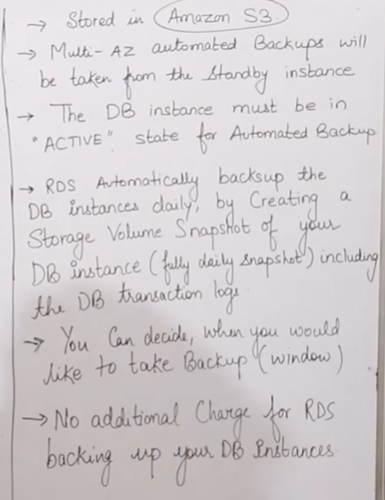 → Stored in Amazon S3
→ Multi-AZ automated Backups will
be taken from the Standby instance
→ The DB instance must be in
"ACTIVE" state for Automated Backup
→ RDS Automatically backsup the
DB instances daily, by Creating a
Storage Volume Snapshot of your
DB instance (fully daily snapshot) including
the DB transaction logs.
→ You Can decide, when you would
like to take Backup (window)
→ No additional Charge for RDS
backing up your DB Instances